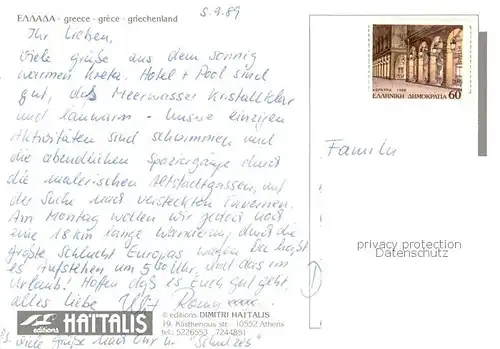 ΕΛΛΑΔΑ · greece · grèce · griechenland
5.9.89
Ihr Lieben,
viele Grüße aus dem sonnig
warmen Kreta. Hotel + Pool sind
gut, das Meerwasser kristallklar
und lauwarm - Unsere einzigen
Aktivitäten sind schwimmen und
die abendlichen Spaziergänge durch
die malerischen Altstadtgassen, auf
der Suche nach versteckten Tavernen.
Am Montag wollen wir jedoch noch
eine 18 km lange Wanderung durch die
größte Schlucht Europas wagen. Da heißt
es Aufstehen um 5.00 Uhr, und das im
Urlaub! Hoffen daß es Euch gut geht,
alles Liebe
P.S. viele Grüße auch an "Schulzes"
ΚΕΡΚΥΡΑ 1988
ΕΛΛΗΝΙΚΗ ΔΗΜΟΚΡΑΤΙΑ 60
Familie
D
privacy protection
Datenschutz
editions
HAITALIS
© editions DIMITRI HAITALIS
19, Kasthenous str. · 10552 Athens
tel.: 5226553 · 7244851